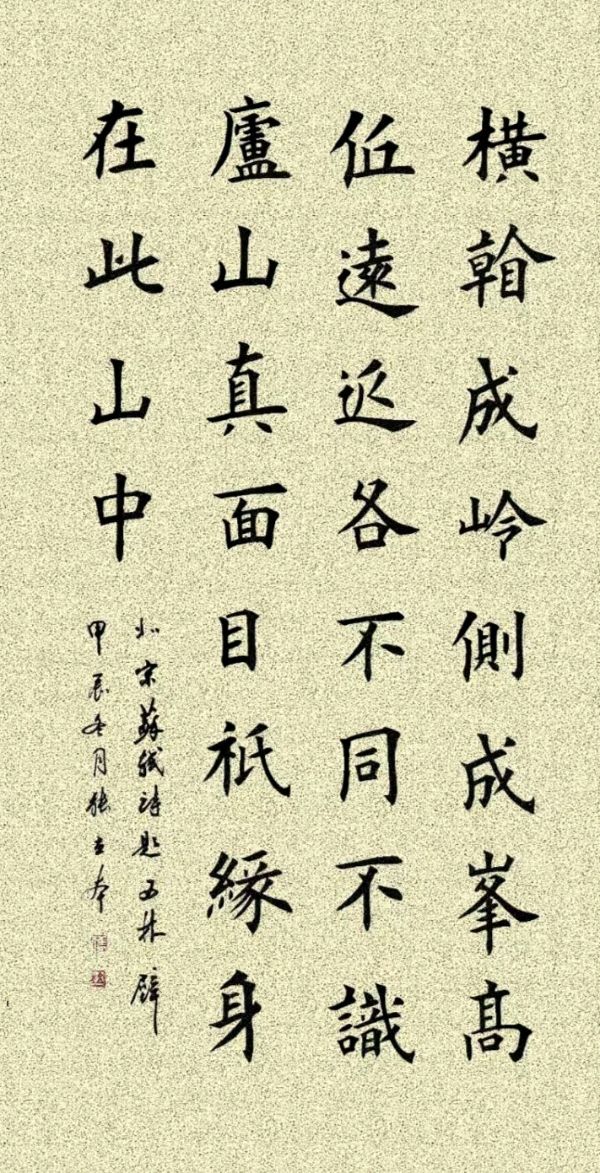 橫看成岭側成峯髙
低遠近各不同不識
廬山真面目祇緣身
在此山中
北宋蘇軾詩題西林壁
甲辰冬月張立